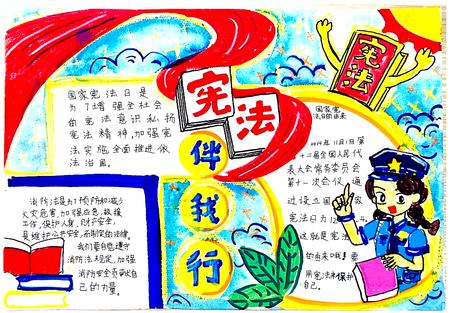 宪法
伴
我
行
宪法
国家宪法日是
为了增强全社会
的宪法意识私扬
宪法精神,加强宪
法实施全面推进依
法治国。
消防法是为了预防和减少
火灾危害,加强应急救援
工作,保护人身、财产安全,
维护公共安全,而制定的法律,
我们要自觉遵守
消防法规定,加强
消防安全员献自
己的力量。
国家宪
法日的由来
2014年11月1日第
十二届全国人民代
表大会常务委员会
第十一次会议,通
过设立国 家
宪法日为12 4.
这就是宪法
的由来哦!要
用宪法来保护
自己。